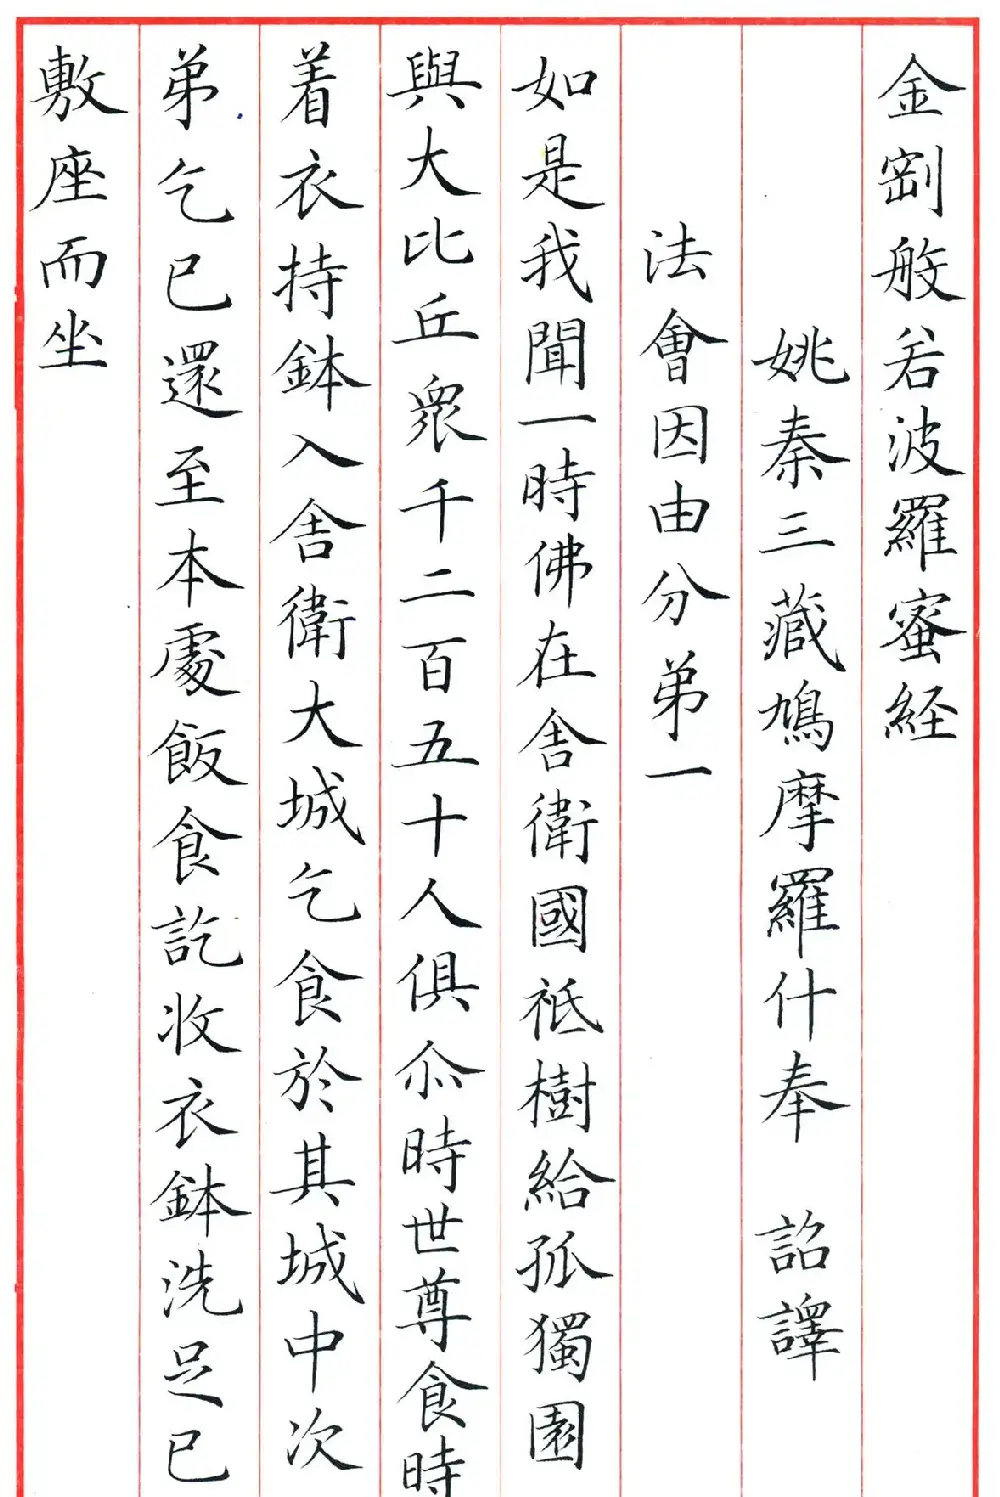 金剛般若波羅蜜経
姚秦三藏鳩摩羅什奉 詔譯
法會因由分弟一
如是我聞一時佛在舎衛國祇樹給孤獨園
與大比丘衆千二百五十人俱尒時世尊食時
着衣持鉢入舎衛大城乞食於其城中次
弟乞已還至本處飯食訖收衣鉢洗足已
敷座而坐